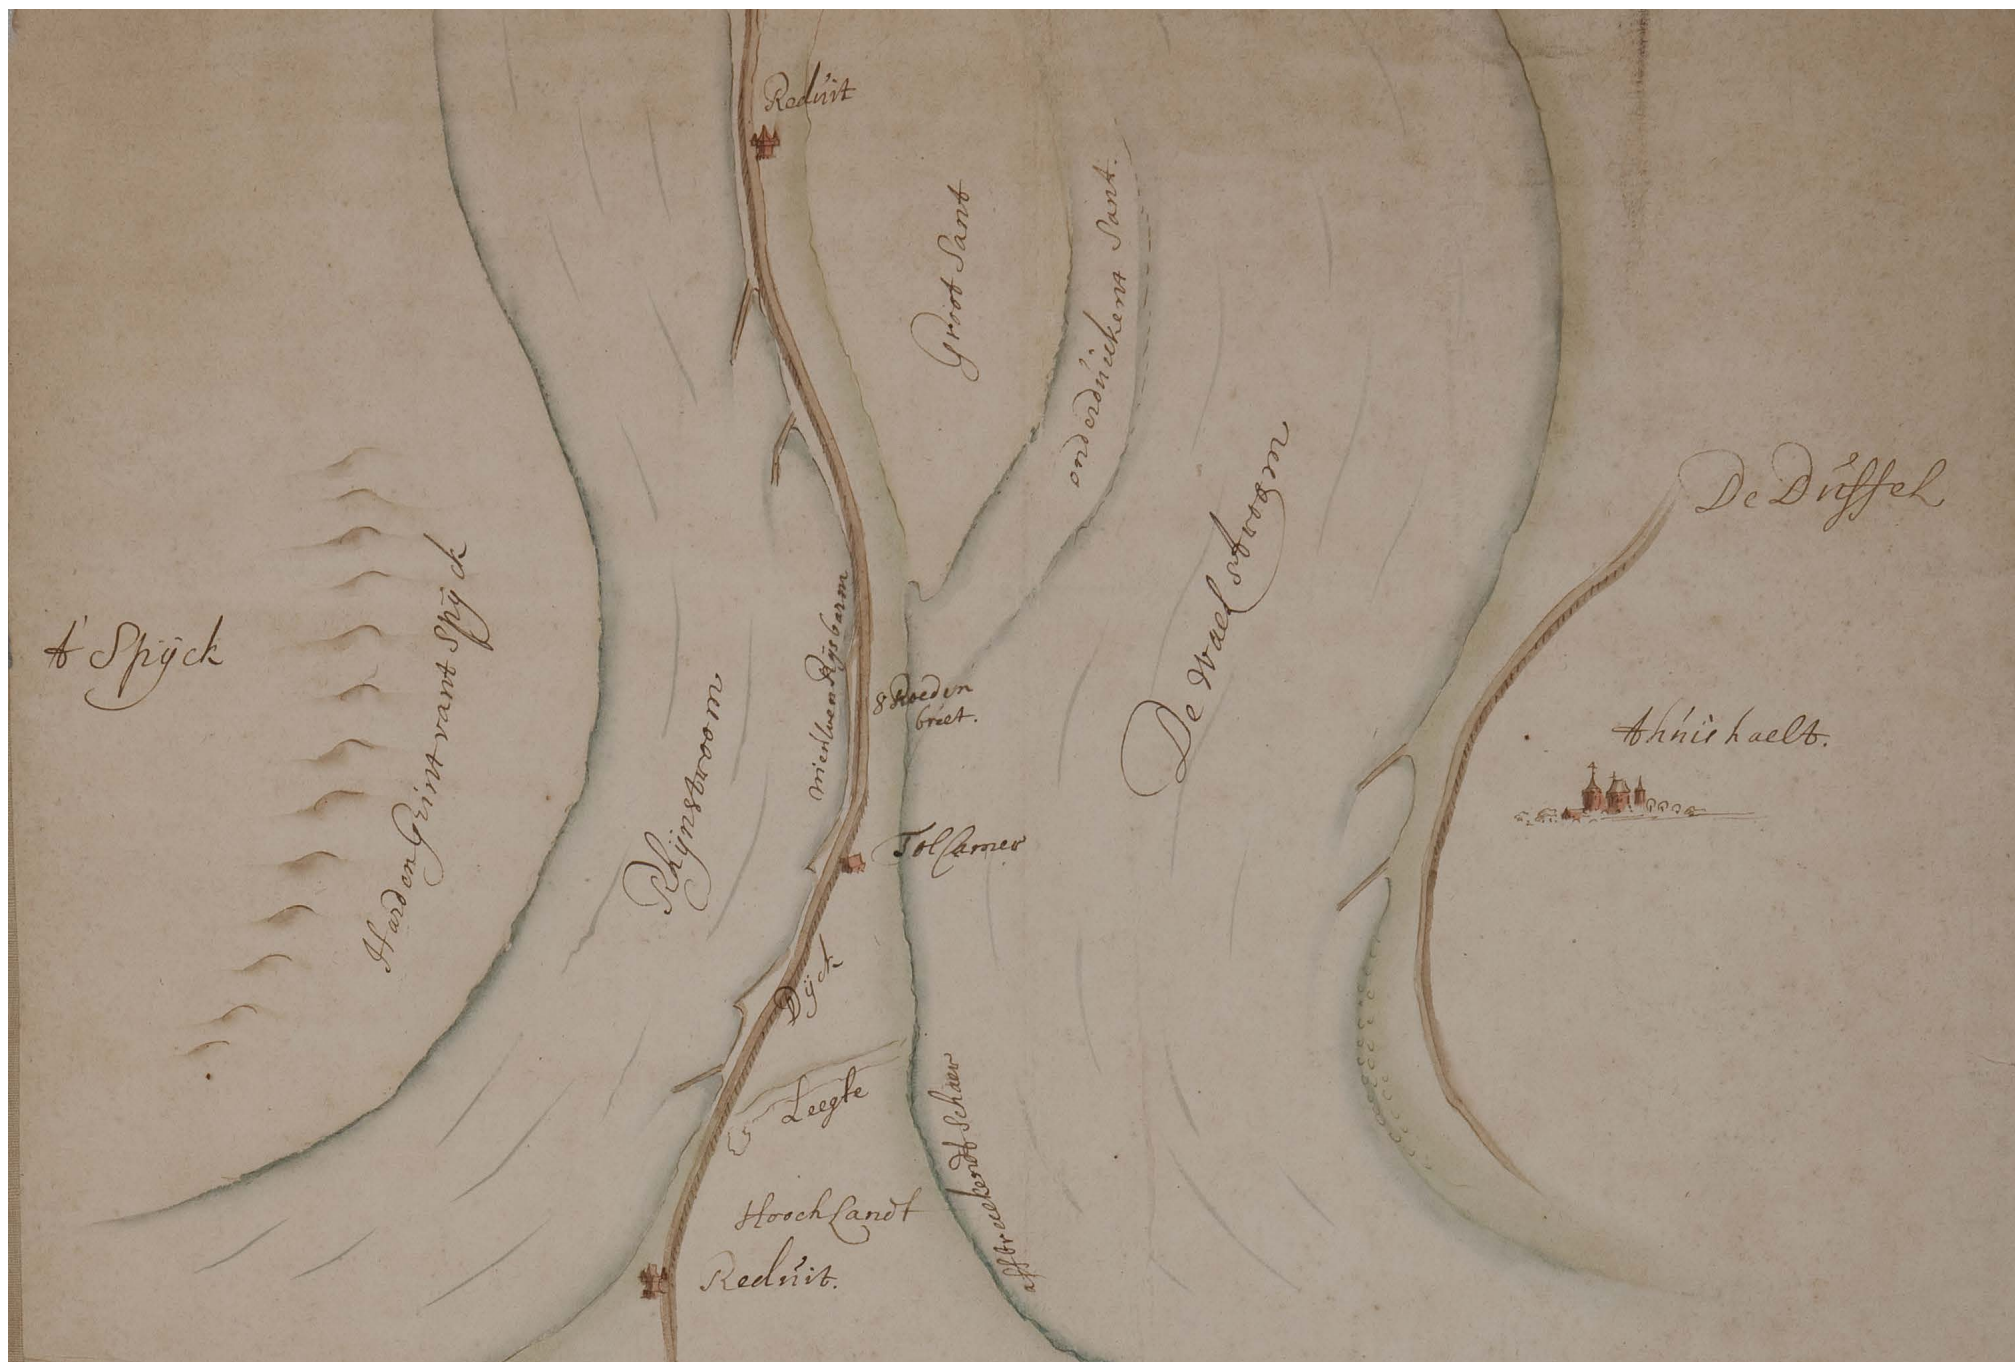 Reduit
Groot Sant
onderduickent Sant.
De Duffel
t' Spijck
Harden Grint vant Spijck
Rhijnstroom
nieuwen Rijsbarm
8 Roeden
breet.
De Wael stroom
t huis haelt.
Tol Camer
Dijck
Leegte
affbraekendt Schaer
Hooch Landt
Reduit.